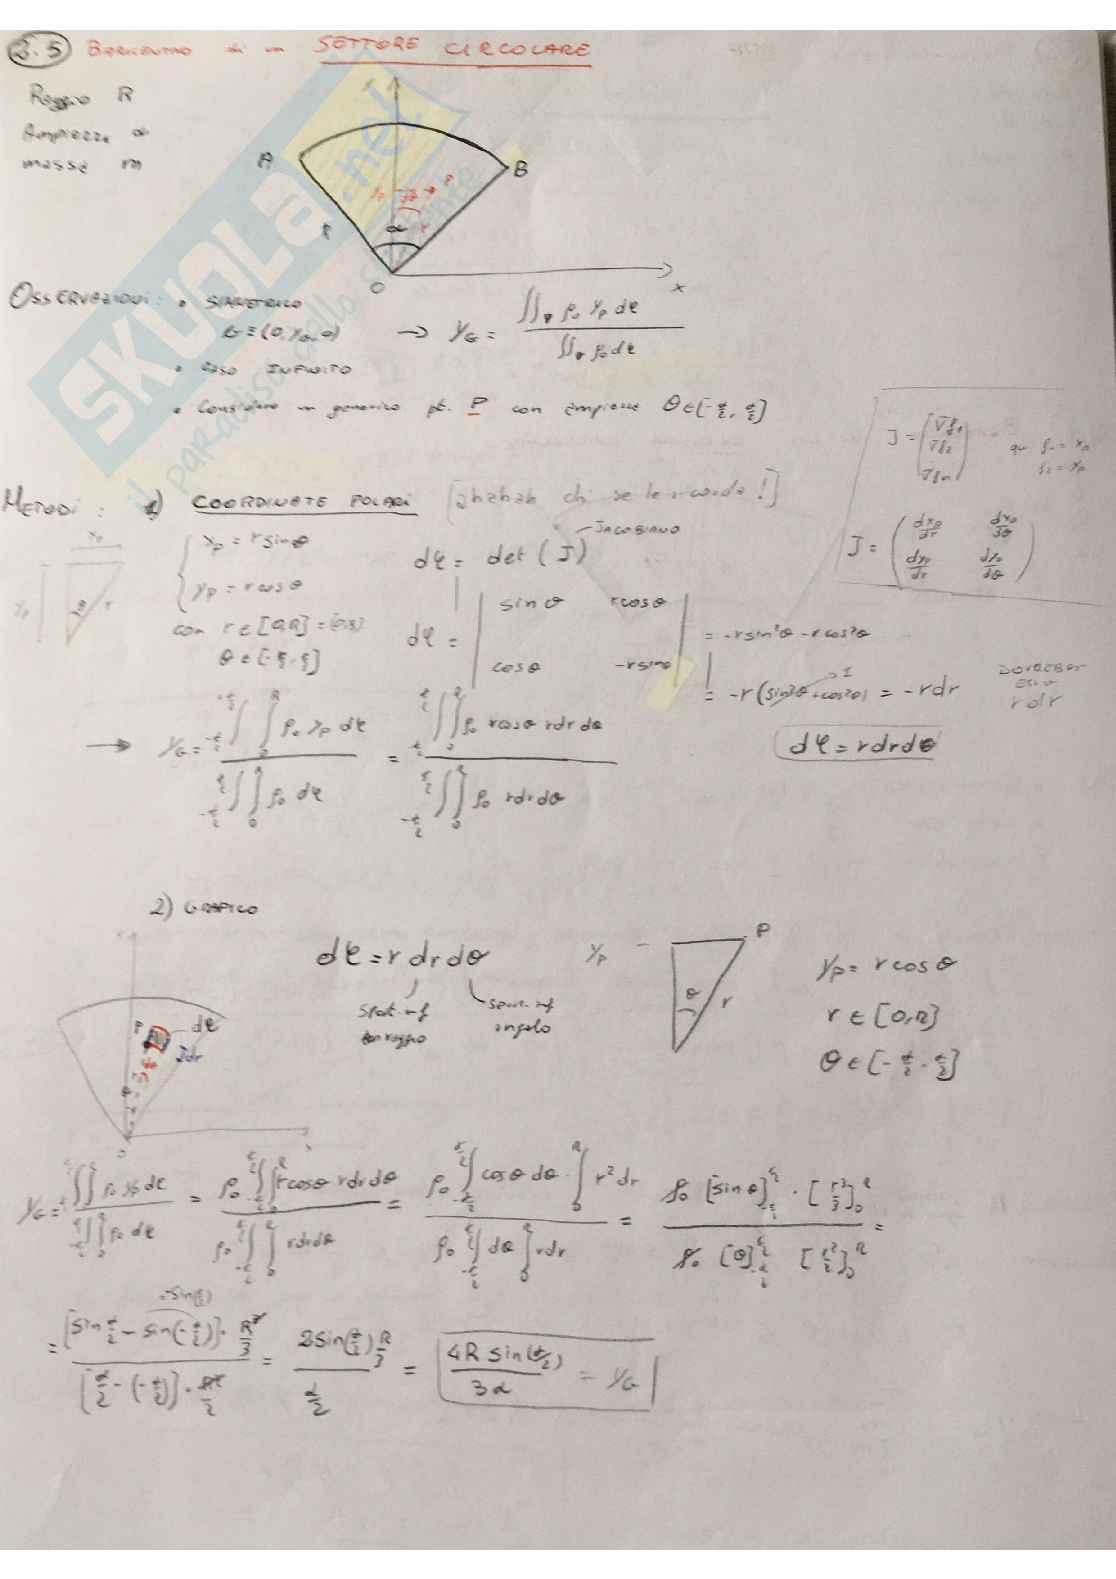 2.5 BARICENTRO di un SETTORE CIRCOLARE
Raggio R
Ampiezza α
massa m
A
B
R
α
O
x
OSSERVAZIONI: • SIMMETRICO
G ≡ (0, y_G, 0) → y_G = ∬_φ ρ₀ y_P dφ / ∬_φ ρ₀ dφ
• CASO INFINITO
• Considero un generico pt. P con ampiezza θ ∈ [-α/2, α/2]
J = (∇f₁ ∇f₂ ∇fn) qui f₁ = x_P
f₂ = y_P
J = (dx_P/dr dx_P/dθ
dy_P/dr dy_P/dθ)
METODI: 1) COORDINATE POLARI [ahahah chi se le ricorda!]
x_P
y_P
θ
r
{ x_P = r sinθ
y_P = r cosθ
con r ∈ [0,R]
θ ∈ [-α/2, α/2]
dφ = det (J) JACOBIANO
dφ = | sinθ r cosθ
cosθ -r sinθ | = -r sin²θ - r cos²θ
= -r (sin²θ + cos²θ) = -r dr
1
DOVREBBE
r dr
dφ = r dr dθ
→ y_G = ∫_{-α/2}^{α/2} ∫_0^R ρ₀ y_P dφ / ∫_{-α/2}^{α/2} ∫_0^R ρ₀ dφ = ∫_{-α/2}^{α/2} ∫_0^R ρ₀ r cosθ r dr dθ / ∫_{-α/2}^{α/2} ∫_0^R ρ₀ r dr dθ
2) GRAFICO
dφ = r dr dθ
Spost. inf
raggio
Spost. inf
angolo
P
dφ
dr
O
y_P
P
θ
r
y_P = r cosθ
r ∈ [0,R]
θ ∈ [-α/2, α/2]
y_G = ∫_{-α/2}^{α/2} ∫_0^R ρ₀ y_P dφ / ∫_{-α/2}^{α/2} ∫_0^R ρ₀ dφ = ρ₀ ∫_{-α/2}^{α/2} ∫_0^R r cosθ r dr dθ / ρ₀ ∫_{-α/2}^{α/2} ∫_0^R r dr dθ = ρ₀ ∫_{-α/2}^{α/2} cosθ dθ · ∫_0^R r² dr / ρ₀ ∫_{-α/2}^{α/2} dθ ∫_0^R r dr = ρ₀ [sinθ]_{-α/2}^{α/2} · [r³/3]_0^R / ρ₀ [θ]_{-α/2}^{α/2} [r²/2]_0^R =
= [sin α/2 - sin(-α/2)] · R³/3 / [α/2 - (-α/2)] · R²/2 = 2 sin(α/2) R/3 / α/2 = 4R sin(α/2) / 3α = y_G
SKUOLA.net
il paradiso dello studente